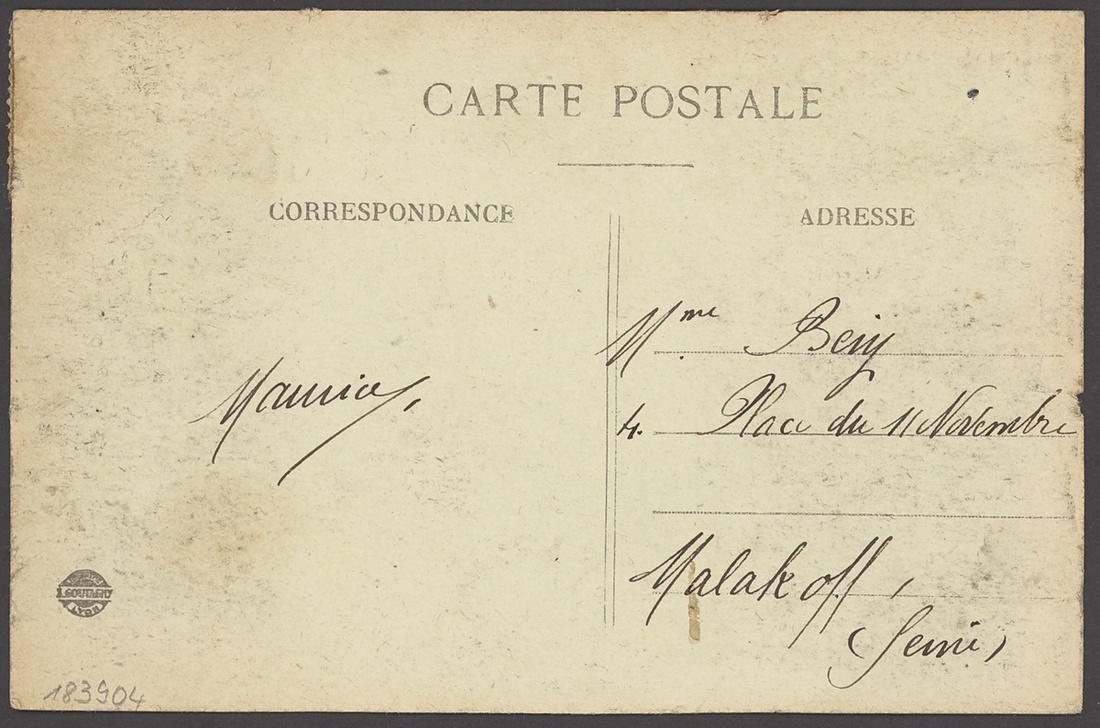 CARTE POSTALE
CORRESPONDANCE
ADRESSE
Mme Bény
4. Place du 11 Novembre
Malakoff,
(Seine)
Maurice,
LYON
183904